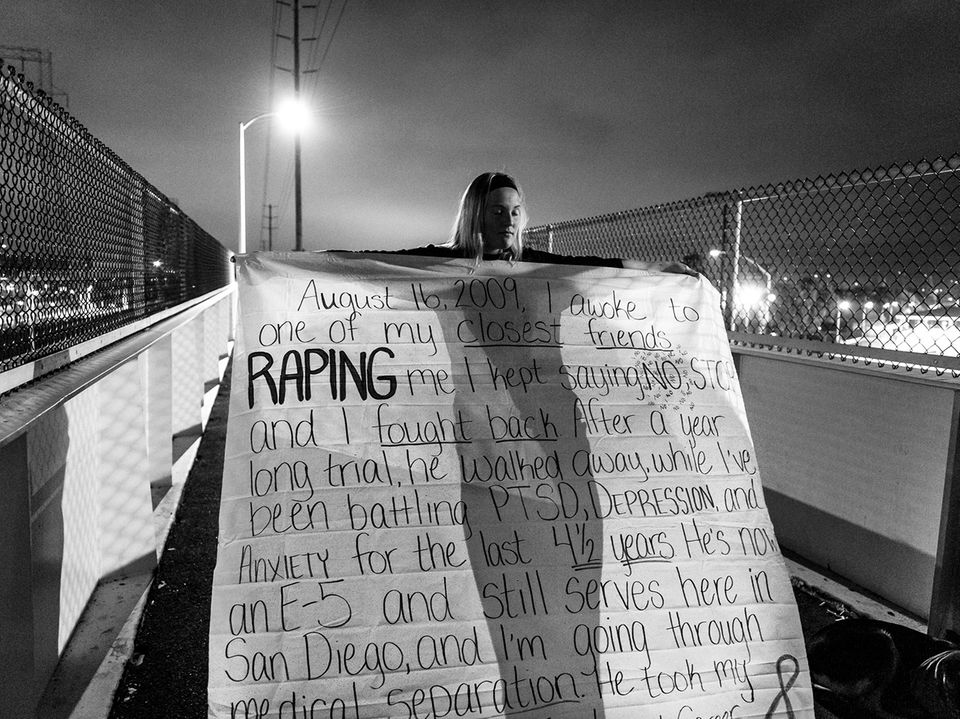 August 16, 2009, I awoke to
one of my closest friends
RAPING me I kept saying NO, STO
and I fought back After a year
long trial, he walked away, while I've
been battling PTSD, DEPRESSION, and
ANXIETY for the last 4½ years He's now
an E-5 and still serves here in
San Diego, and I'm going through
medical separation. He took my